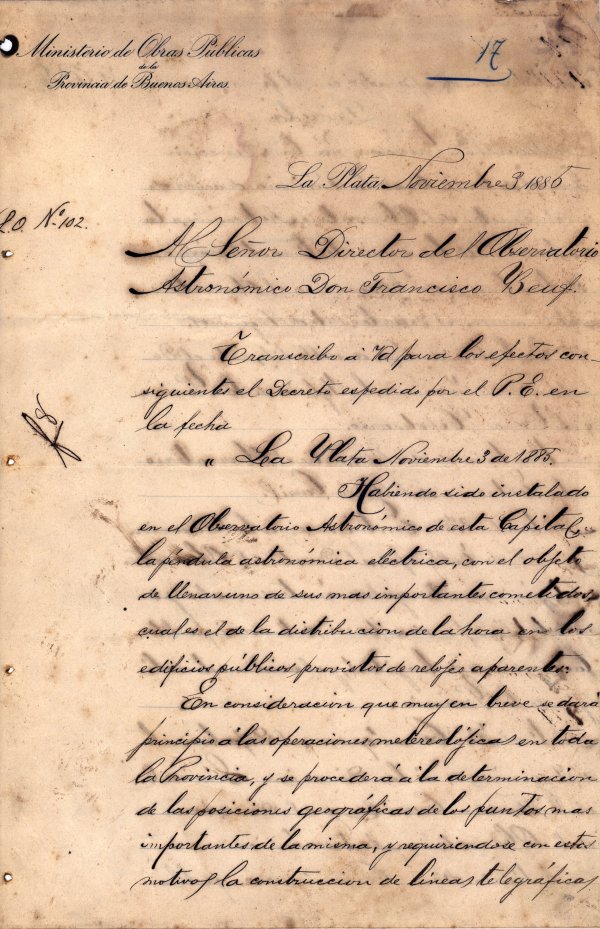 Ministerio de Obras Públicas
de la
Provincia de Buenos Aires
17
La Plata Noviembre 3 1885
L.O. Nº 102.
Al Señor Director del Observatorio
Astronómico Don Francisco Beuf.
Transcribo á Vd para los efectos con-
siguientes el Decreto espedido por el P. E. en
la fecha
" La Plata Noviembre 3 de 1885.
Habiendo sido instalado
en el Observatorio Astronómico de esta Capital
la péndula astronómica eléctrica, con el objeto
de llenar uno de sus mas importantes cometidos,
cual es el de la distribucion de la hora en los
edificios públicos provistos de relojes aparentes.
En consideracion que muy en breve se dará
principio á las operaciones metereológicas en toda
la Provincia, y se procederá á la determinacion
de las posiciones geográficas de los puntos mas
importantes de la misma, y requiriendose con estos
motivos la construccion de lineas telegráficas